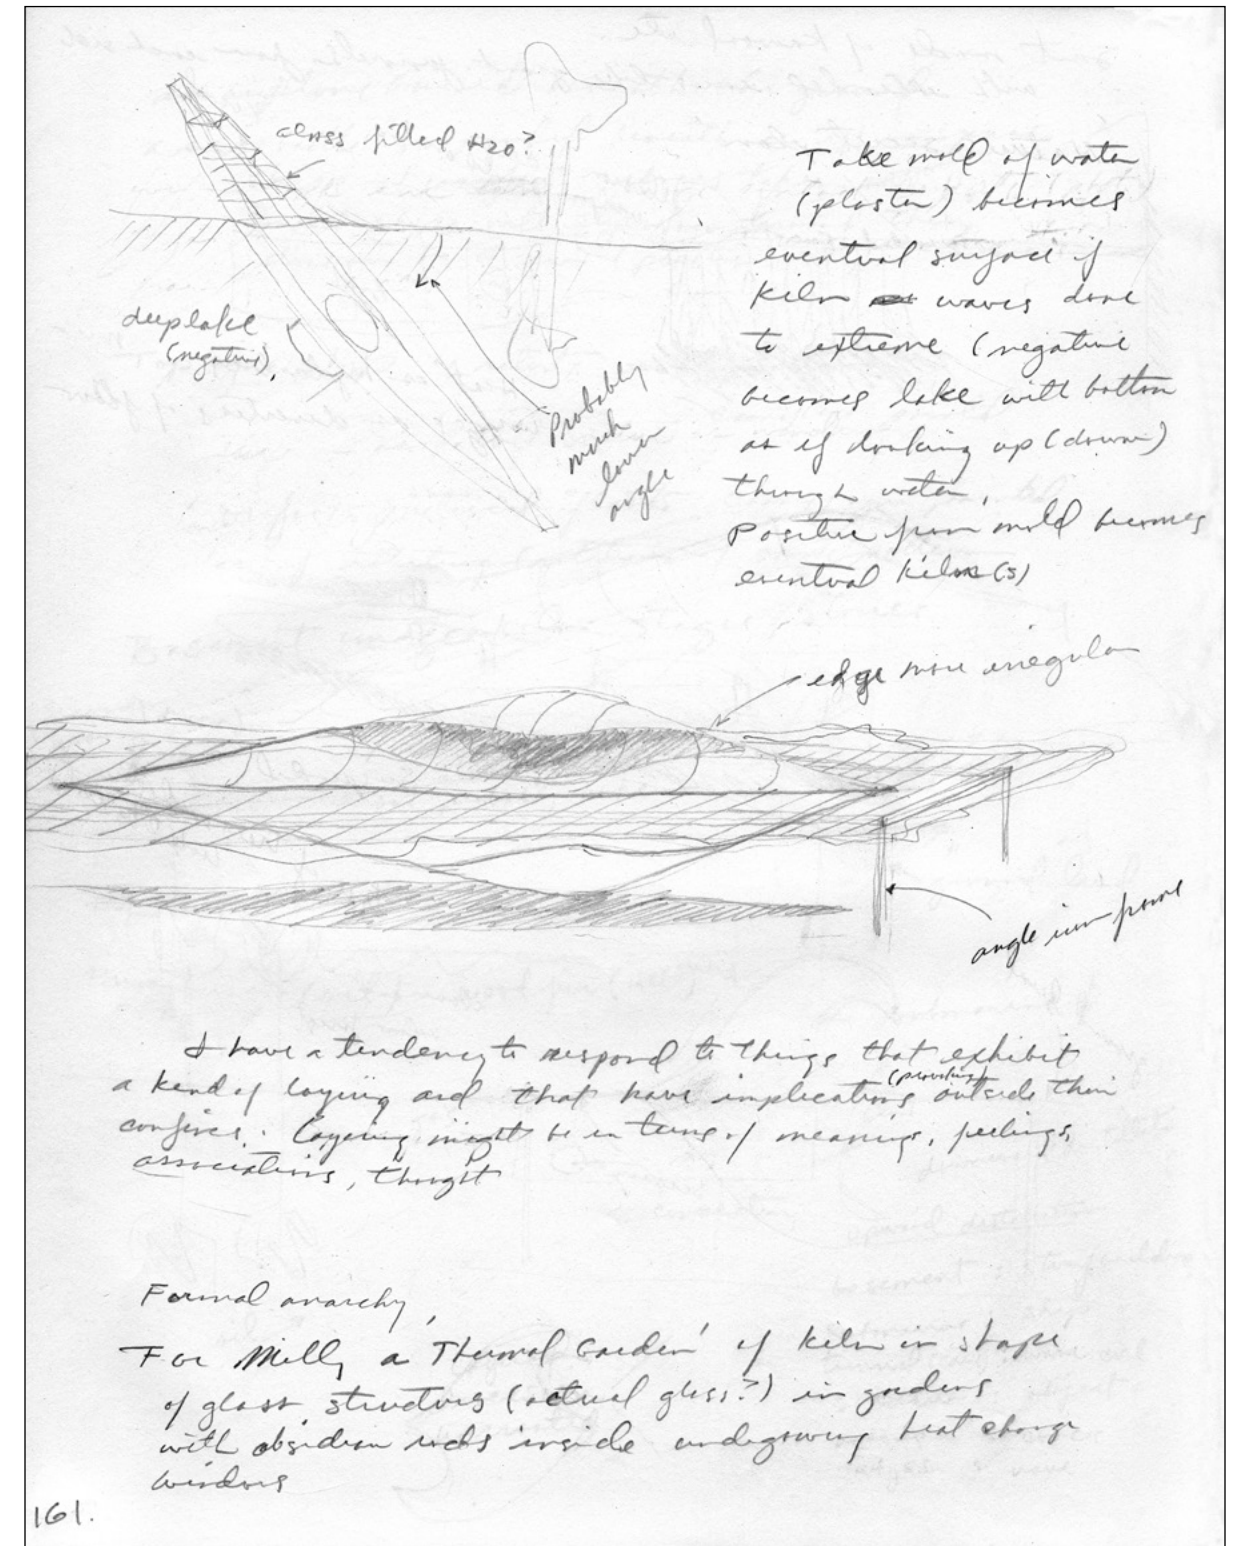 glass filled H2O?
Take mold of water
(plaster) becomes
eventual surface if
kiln waves done
to extreme (negative
becomes lake with bottom
as if looking up (down)
through water.
Positive from mold becomes
eventual kiln(s)
deep lake
(negative).
Probably
much
lower
angle
edge more irregular
angle iron frame
I have a tendency to respond to things that exhibit
a kind of laying and that have implications (providing) outside their
confines. Layering might be in terms of meanings, feelings,
associations, thought
Formal anarchy,
For Milly a Thermal Garden' of kiln in shape
of glass structures (actual glass?) in gardens
with obsidian rocks inside undergowing heat change
windows
161.